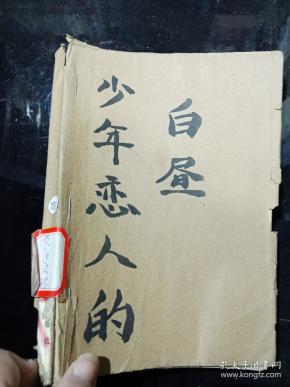 少年恋人的
白昼
孔夫子旧书网
www.kongfz.com